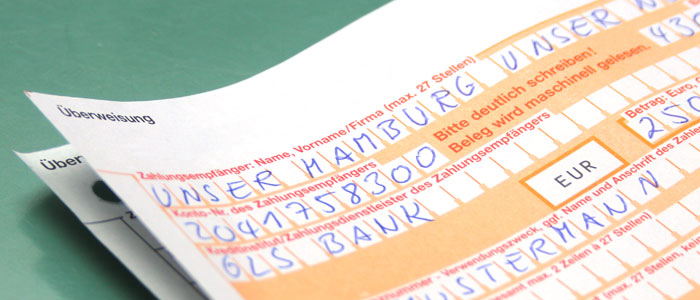 Überweisung
Über
Zahlungsempfänger: Name, Vorname/Firma (max. 27 Stellen)
UNSER HAMBURG UNSER N
Bitte deutlich schreiben!
Beleg wird maschinell gelesen.
Konto-Nr. des Zahlungsempfängers
2041758300
430
Kreditinstitut/Zahlungsdienstleister des Zahlungsempfängers
GLS BANK
EUR
Betrag: Euro,
250
nummer - Verwendungszweck, ggf. Name und Anschrift des Zahlers
USTERMANN
max. 2 Zeilen à 27 Stellen)